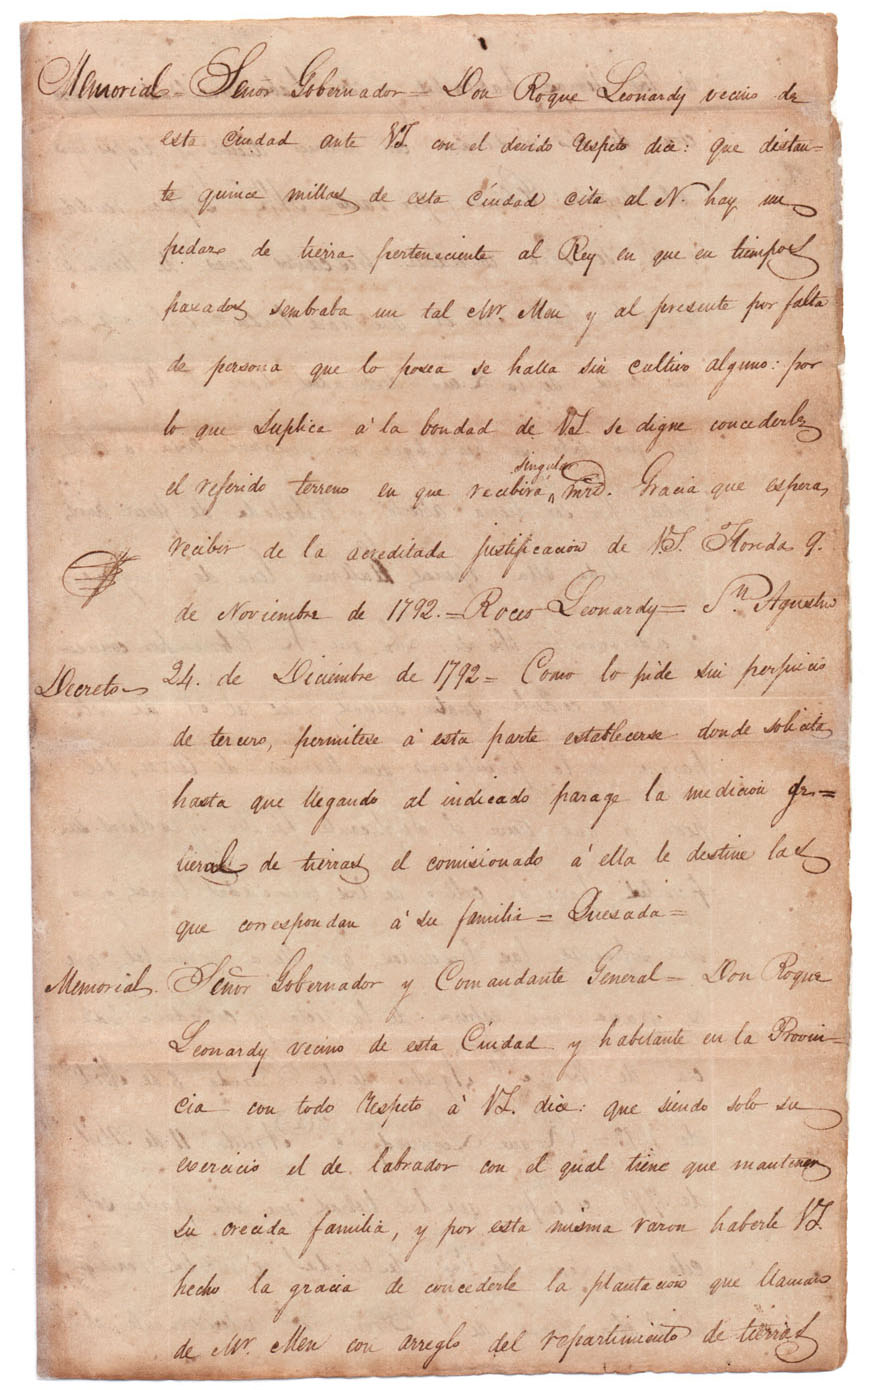 Memorial - Señor Gobernador = Don Roque Leonardy vecino de
esta Ciudad ante VS. con el devido respeto dice: que distan-
te quince millas de esta Ciudad cita al N. hay un
pedazo de tierra perteneciente al Rey en que en tiempos
pasados sembraba un tal Mr. Men y al presente por falta
de persona que lo posea se halla sin cultivo alguno: por
lo que Suplica á la bondad de VS. se digne concederle
singular
el referido terreno en que recibirá mrd. Gracia que espera
recibir de la acreditada justificacion de V.S. Florida 9.
de Noviembre de 1792. = Roces Leonardy = Sn. Agustin
Decreto- 24. de Diciembre de 1792 = Como lo pide sin perjuicio
de tercero, permitese á esta parte establecerse donde solicita
hasta que llegando al indicado parage la medicion ge=
neral de tierras el comisionado á ella le destine las
que correspondan á su familia = Quesada =
Memorial. Señor Gobernador y Comandante General = Don Roque
Leonardy vecino de esta Ciudad y habitante en la Provin-
cia con todo respeto á VS. dice: que siendo solo su
exercicio el de labrador con el qual tiene que mantener
su crecida familia, y por esta misma razon haberle VS
hecho la gracia de concederle la plantacion que llaman
de Mr. Men con arreglo del repartimiento de tierras